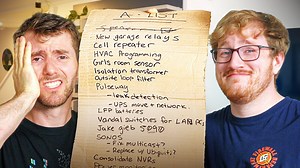 A-LIST
New garage relays
Cell repeater
HVAC Programming
Girls room sensor
Isolation transformer
outside loop filter
Pulseway
- leak detection
- UPS move + network
LFP batteries
Vandal switches for LAN PC
Jake gets
SONOS
- Fix multicast?
- Replace w/ Ubiquiti?
Consolidate NVRs